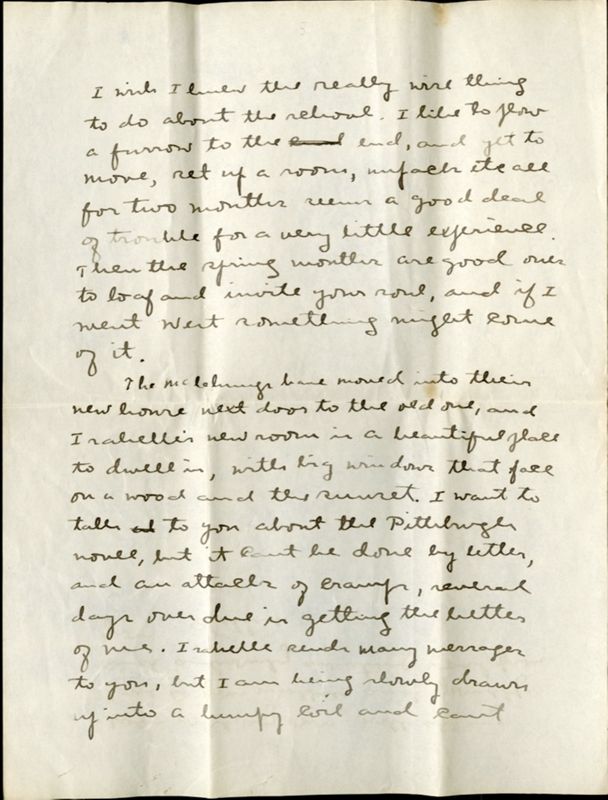 I wish I knew the really wise thing
to do about the school. I like to plow
a furrow to the end, and yet to
move, set up a room, unpack etc all
for two months seems a good deal
of trouble for a very little experience.
Then the spring months are good ones
to loaf and invite your soul, and if I
went West something might come
of it.
The McClungs have moved into their
new house next door to the old one, and
Isabelle's new room is a beautiful place
to dwell in, with big windows that face
on a wood and the sunset. I want to
talk to you about the Pittsburgh
novel, but it can't be done by letter,
and an attack of cramps, several
days over due is getting the better
of me. Isabelle sends many messages
to you, but I am being slowly drawn
up into a lumpy coil and can't